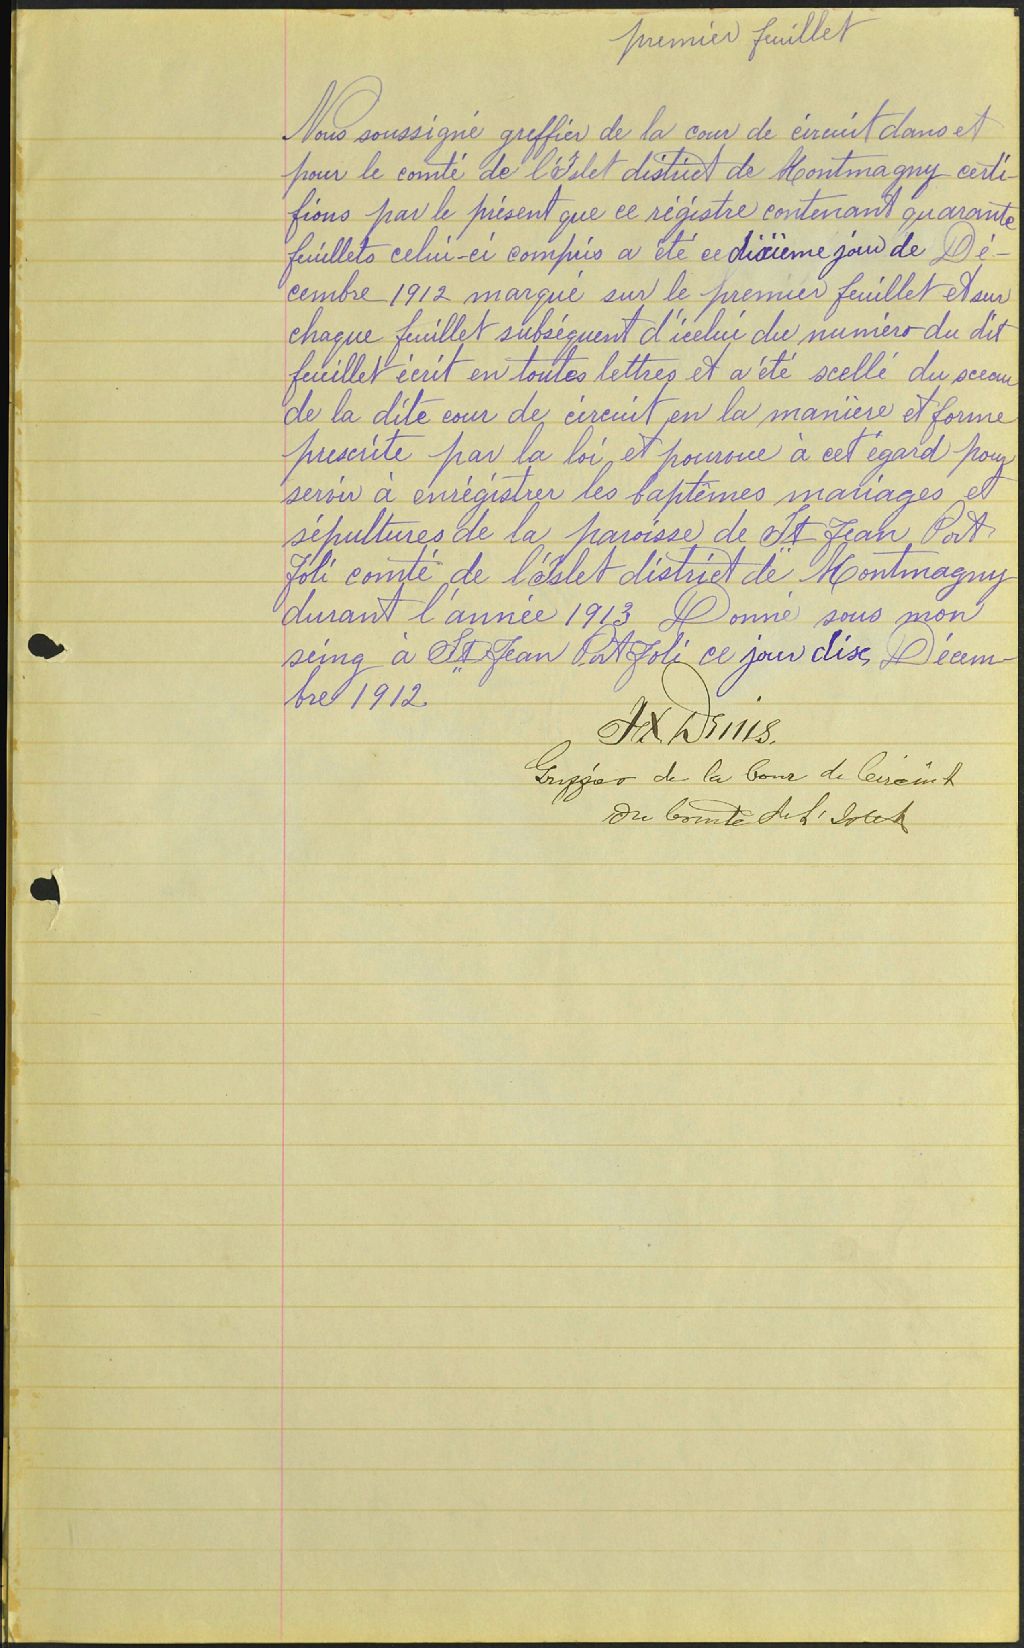 premier feuillet
Nous soussigné greffier de la cour de circuit dans et
pour le comté de l'Islet district de Montmagny certi-
fions par le présent que ce régistre contenant quarante
feuillets celui-ci compris a été ce dixième jour de Dé-
cembre 1912 marqué sur le premier feuillet et sur
chaque feuillet subséquent d'icelui du numéro du dit
feuillet écrit en toutes lettres et a été scellé du sceau
de la dite cour de circuit en la manière et forme
prescrite par la loi et pourvue à cet égard pour
servir à enrégistrer les baptêmes mariages et
sépultures de la paroisse de St Jean Port
Joli comté de l'Islet district de Montmagny
durant l'année 1913 Donné sous mon
seing à St Jean Port Joli ce jour dix Décem-
bre 1912
FX Denis.
Greffier de la Cour de Circuit
du Comté de L'Islet